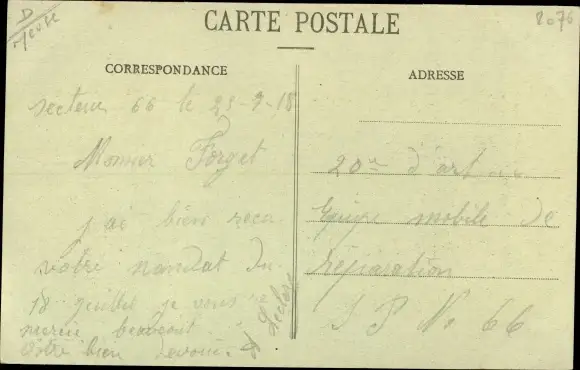 D
Meuse
2076
CARTE POSTALE
CORRESPONDANCE
secteur 66 le 23-9-18
Monsieur Forget
j'ai bien recu
votre mandat du
18 juillet je vous
merci beaucout
Votre bien devoué
ADRESSE
20me d'art
Equipe mobile de
réparation
S P No 66